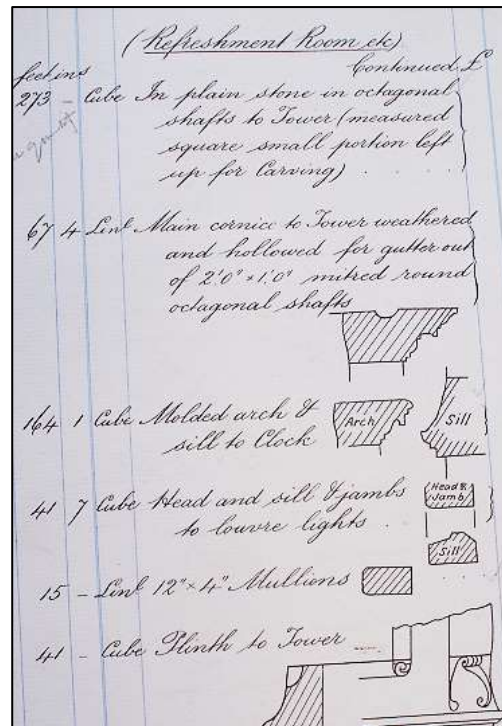 (Refreshment Room etc)
Continued £
feet ins
273 - Cube In plain stone in octagonal
shafts to Tower (measured
square small portion left
up for Carving)
67 4 Linl Main cornice to Tower weathered
and hollowed for gutter out
of 2'0" × 1'0" mitred round
octagonal shafts
164 1 Cube Molded arch &
sill to Clock
Arch
Sill
41 7 Cube Head and sill & jambs
to louvre lights
Head &
Jamb
Sill
15 - Linl 12" × 4" Mullions
41 - Cube Plinth to Tower